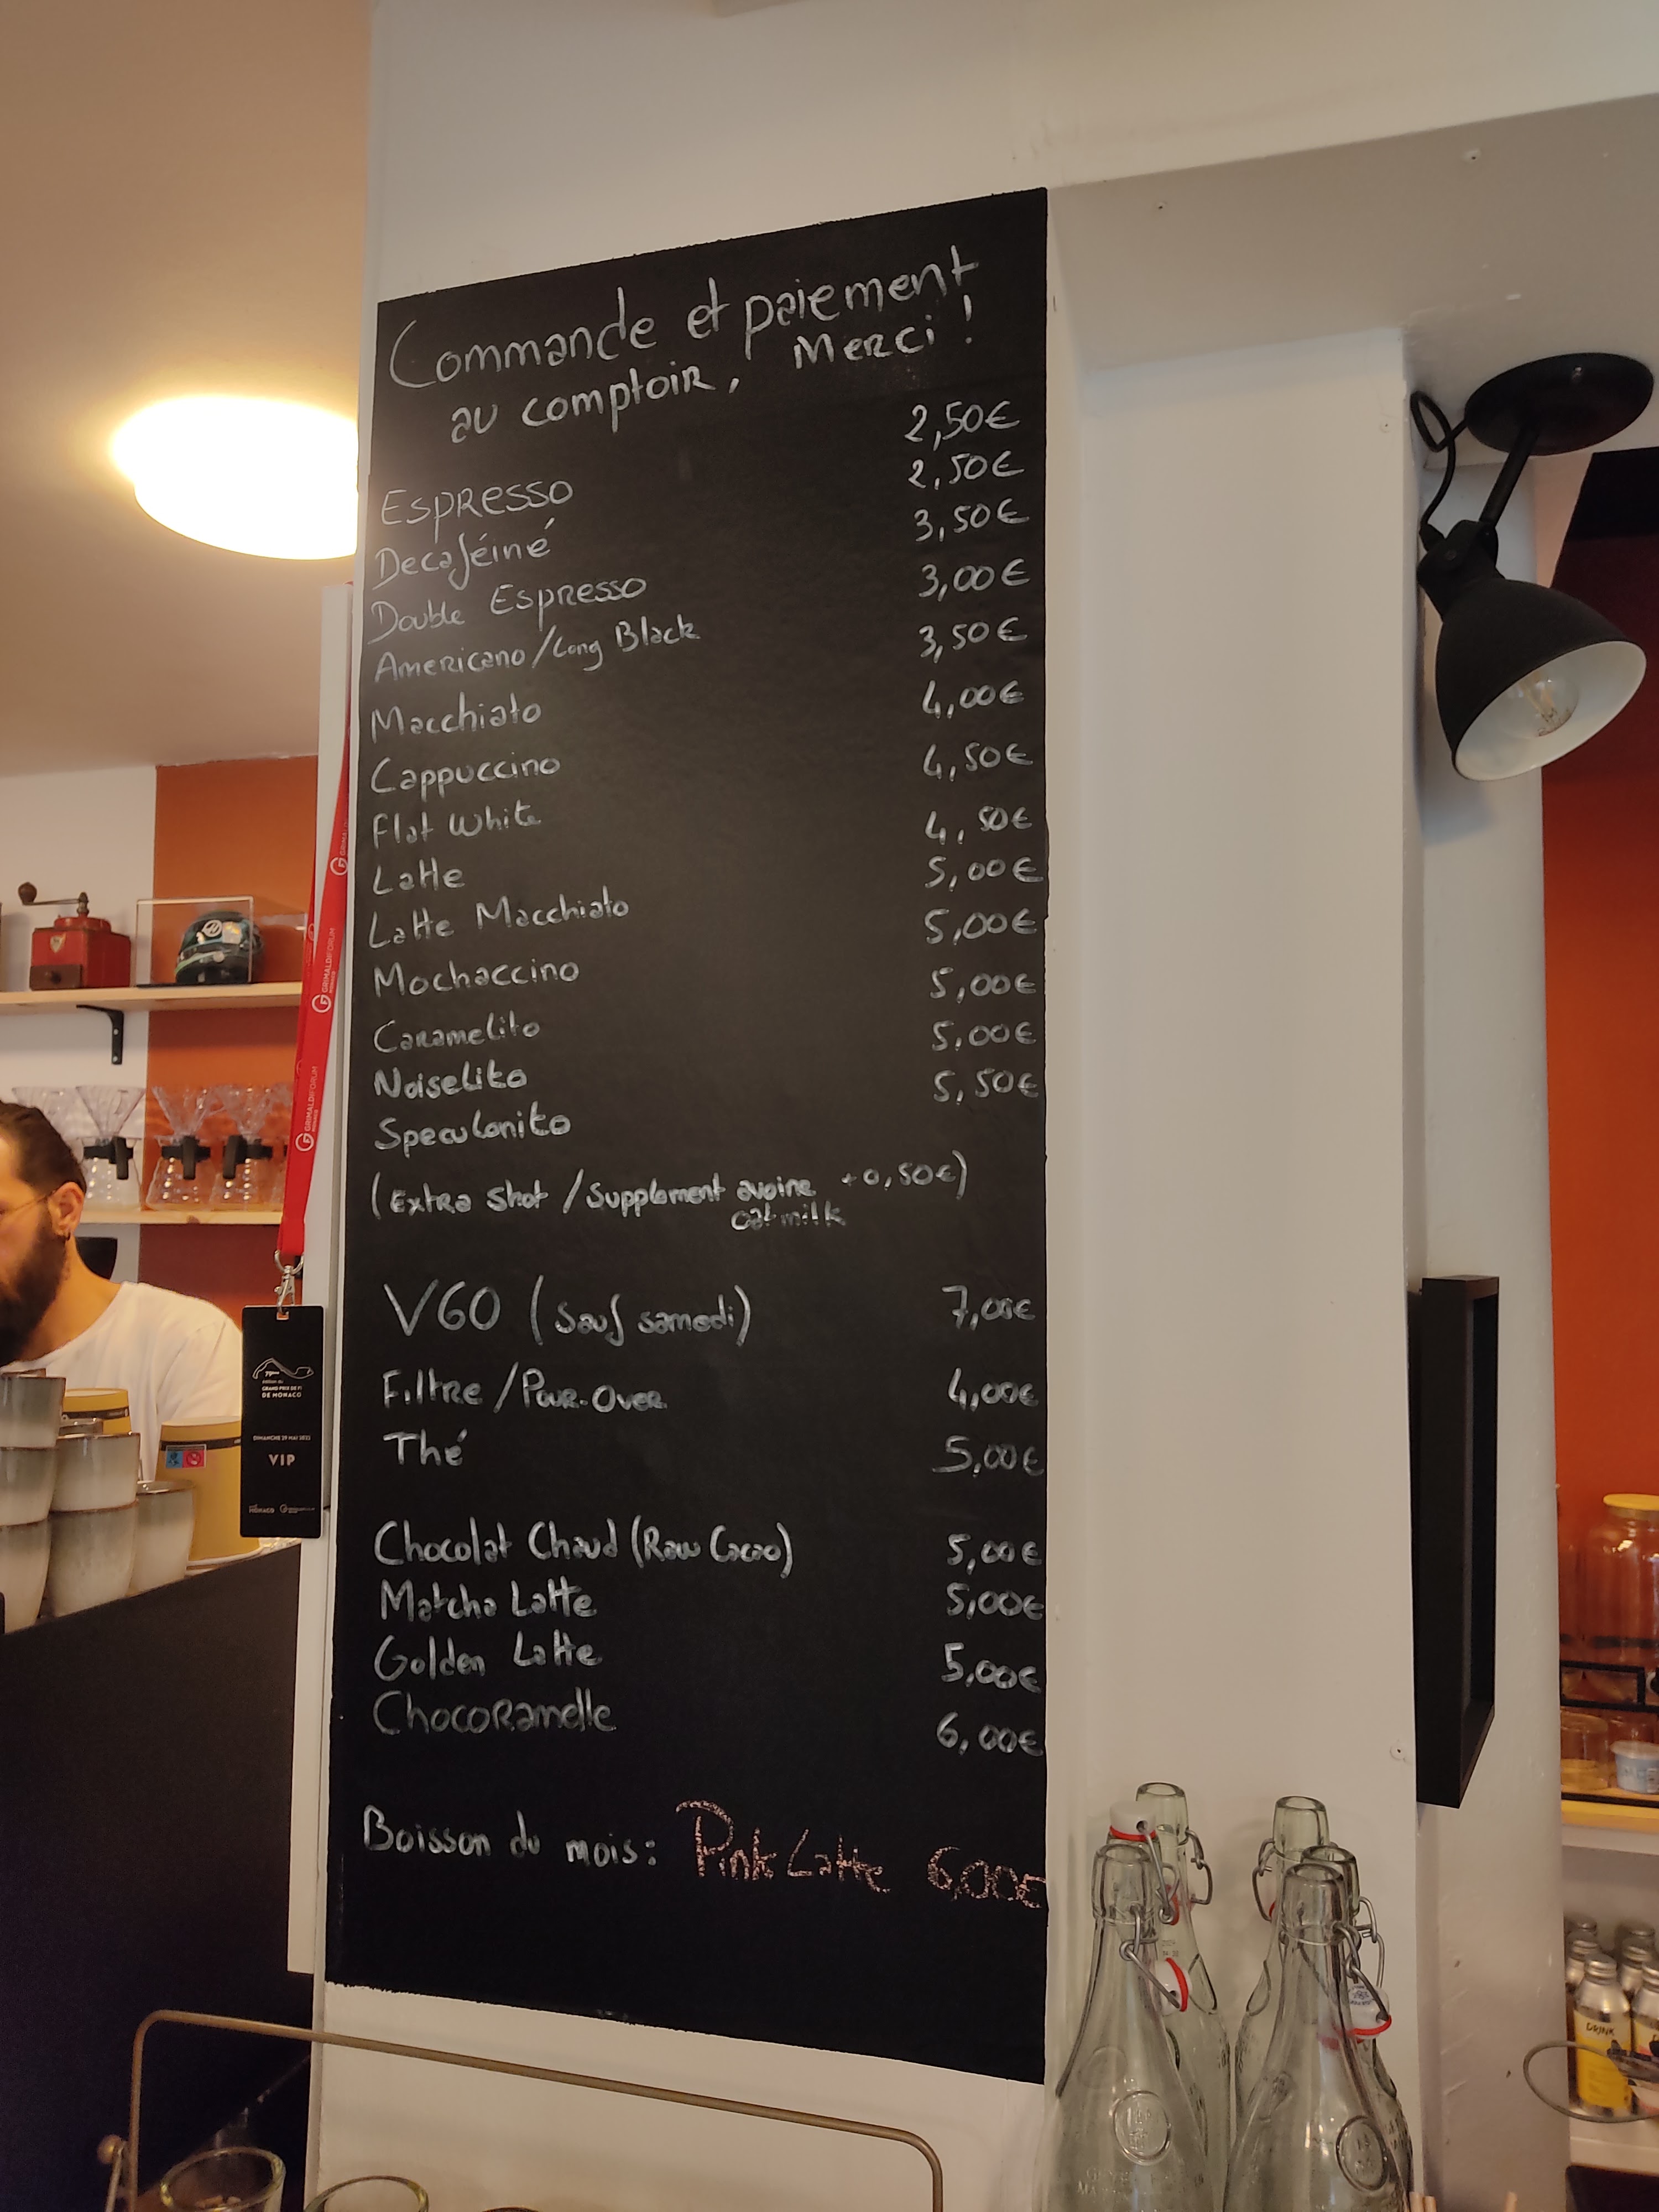 Commande et paiement
au comptoir, Merci !
Espresso 2,50€
Decaféiné 2,50€
Double Espresso 3,50€
Americano/Long Black 3,00€
Macchiato 3,50€
Cappuccino 4,00€
Flat White 4,50€
Latte 4,50€
Latte Macchiato 5,00€
Mochaccino 5,00€
Caramelito 5,00€
Noiselito 5,00€
Speculonito 5,50€
(Extra Shot / Supplement avoine +0,50€)
oat milk
V60 (Sauf samedi) 7,00€
Filtre / Pour-Over 4,00€
Thé 5,00€
Chocolat Chaud (Raw Cacao) 5,00€
Matcha Latte 5,00€
Golden Latte 5,00€
Chocoramelle 6,00€
Boisson du mois: Pink Latte 6,00€
GRIMALDI FORUM
GRIMALDI FORUM
GRIMALDI FORUM
GRAND PRIX DE F1
DE MONACO
DIMANCHE 29 MAI 2022
VIP
MONACO
DRINK